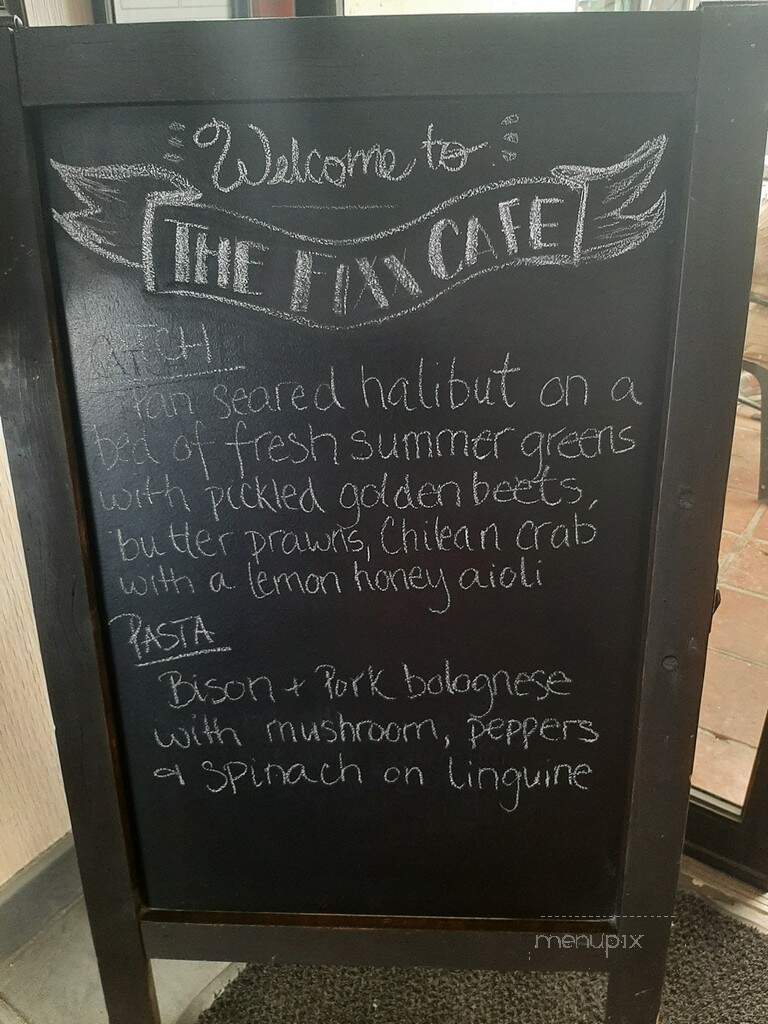 Welcome to
THE FIXX CAFE
CATCH
Pan seared halibut on a
bed of fresh summer greens
with pickled golden beets,
butter prawns, Chilean crab
with a lemon honey aioli
PASTA
Bison + Pork bolognese
with mushroom, peppers
& spinach on linguine
menupix